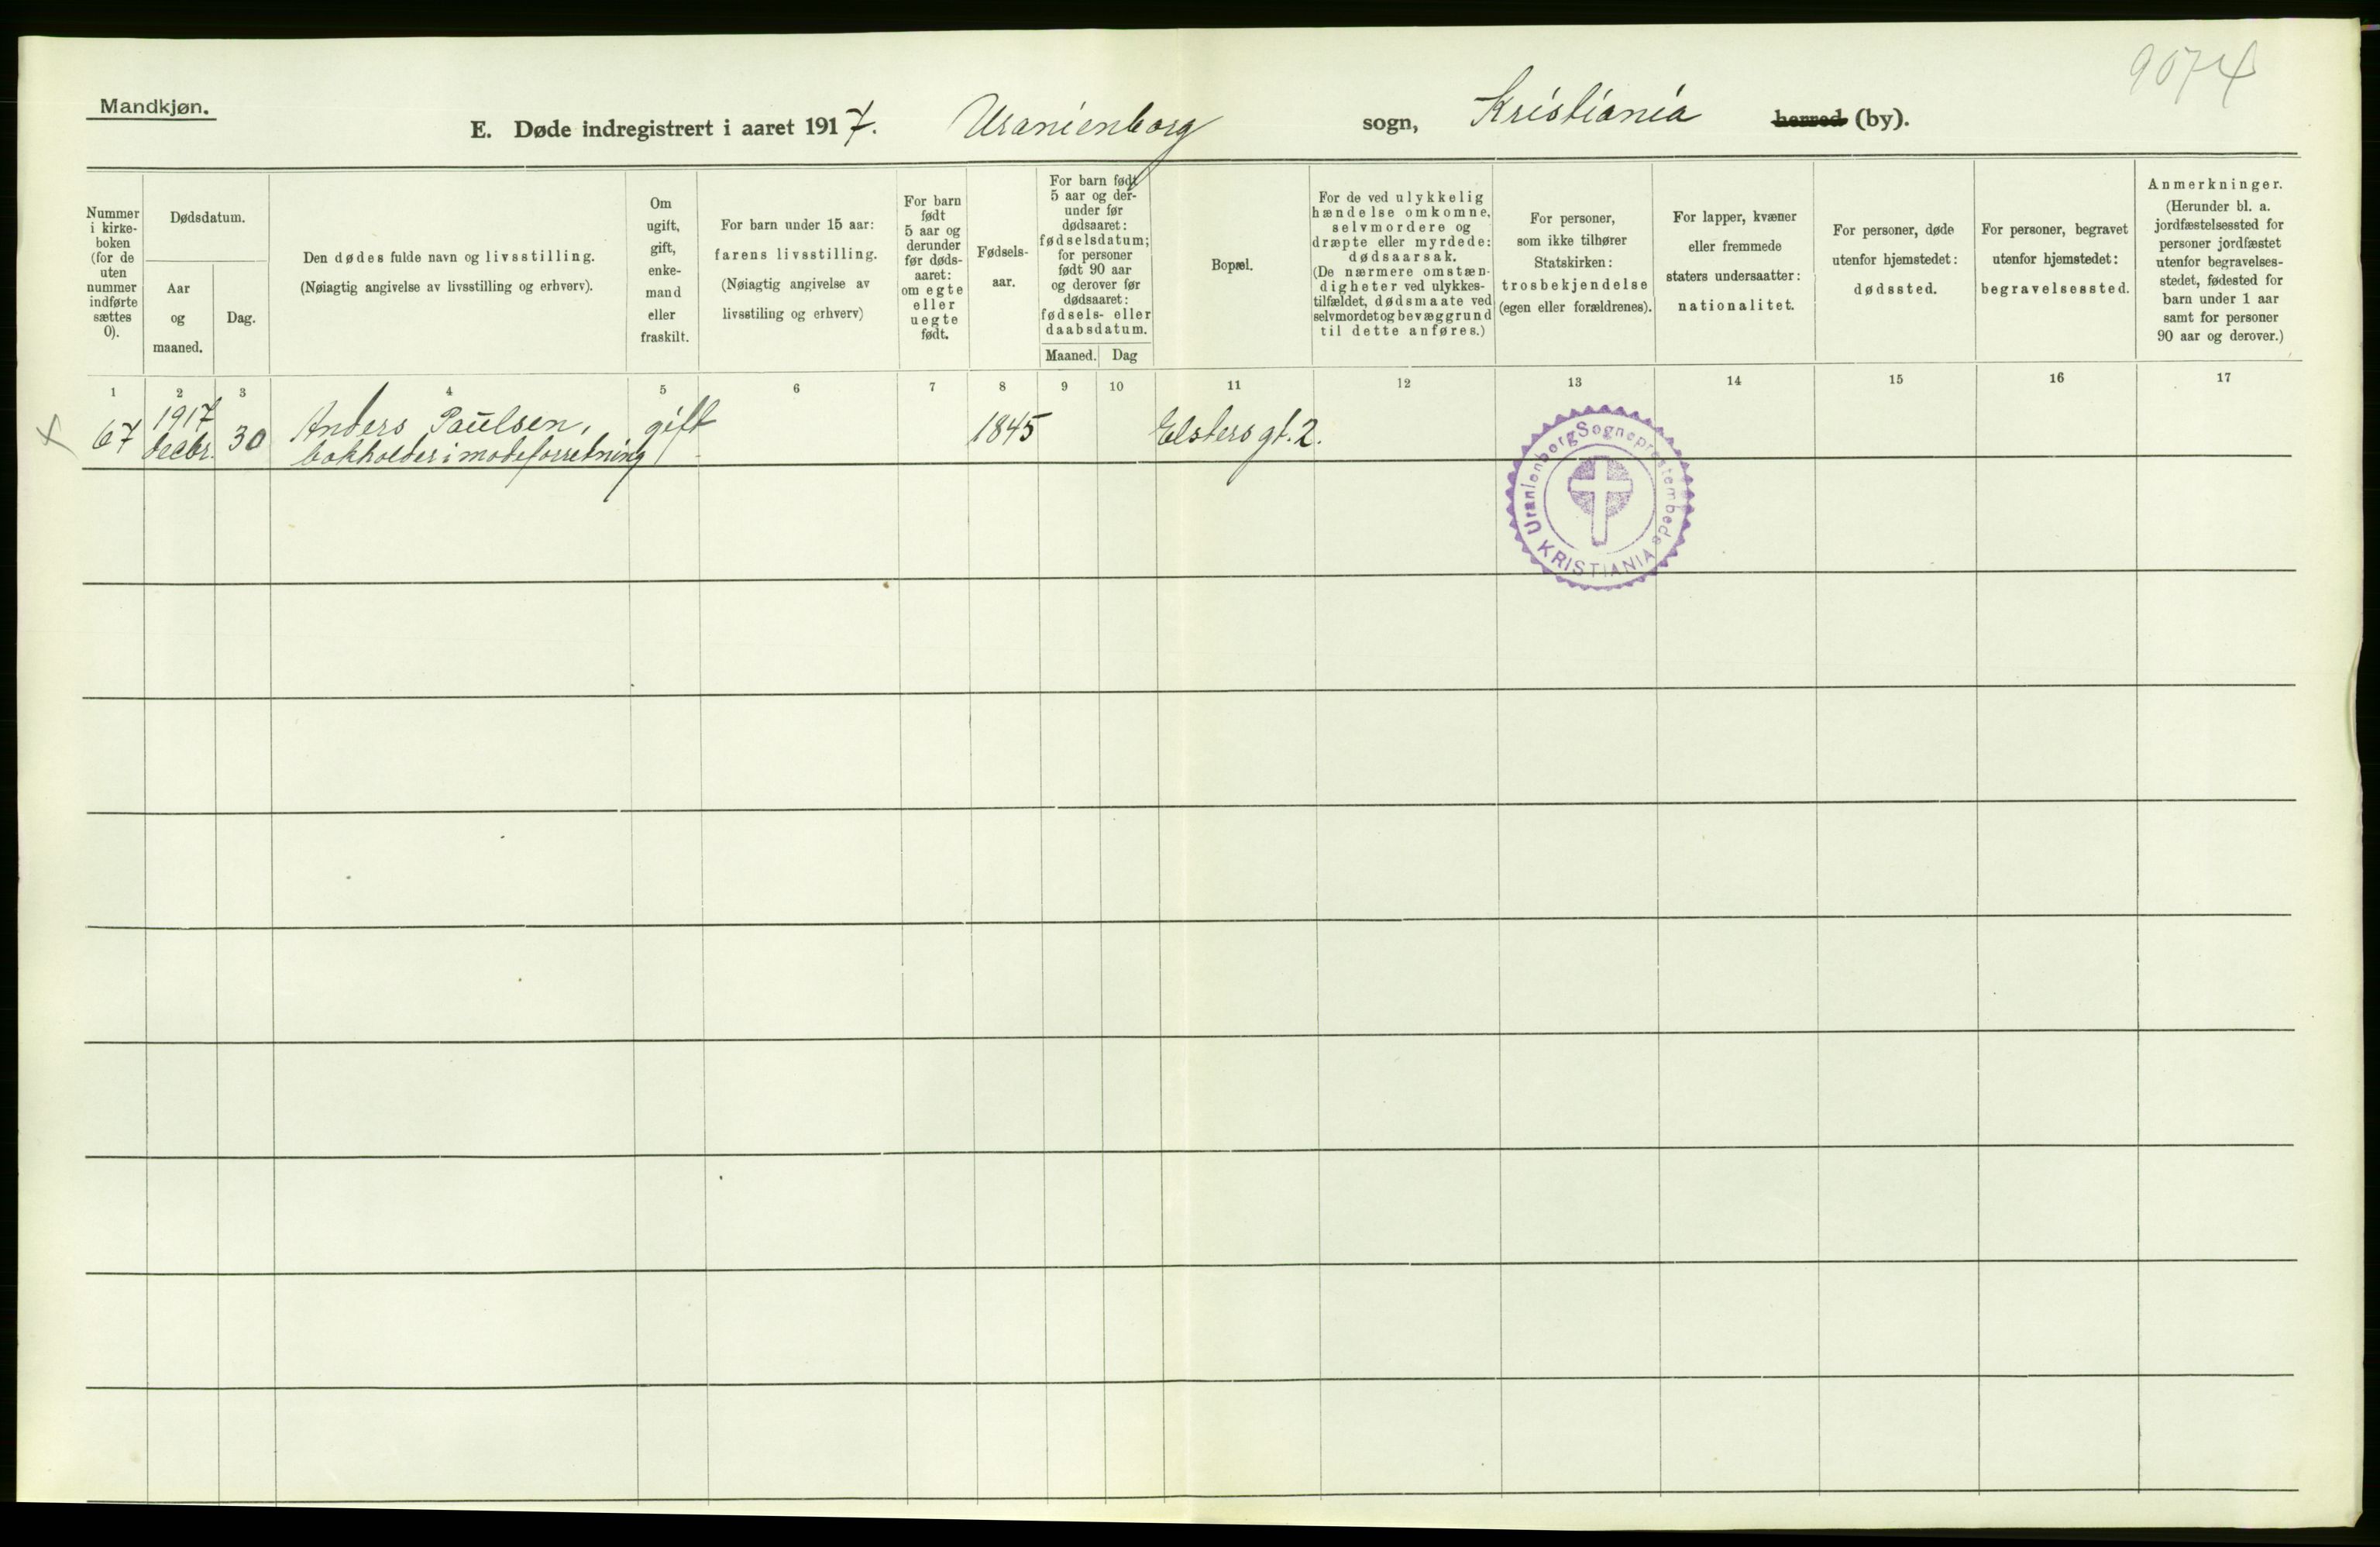 9074
Mandkjøn.
E. Døde indregistrert i aaret 1917. Uranienborg sogn, Kristiania herred (by).
Nummer
i kirke-
boken
(for de
uten
nummer
indførte
sættes
0).
Dødsdatum.
Aar
og
maaned.
Dag.
Den dødes fulde navn og livsstilling.
(Nøiagtig angivelse av livsstilling og erhverv).
Om
ugift,
gift,
enke-
mand
eller
fraskilt.
For barn under 15 aar:
farens livsstilling.
(Nøiagtig angivelse av
livsstiling og erhverv)
For barn
født
5 aar og
derunder
før døds-
aaret:
om egte
eller
uegte
født.
Fødsels-
aar.
For barn født
5 aar og der-
under før
dødsaaret:
fødselsdatum;
for personer
født 90 aar
og derover før
dødsaaret:
fødsels- eller
daabsdatum.
Maaned. Dag
Bopæl.
For de ved ulykkelig
hændelse omkomne,
selvmordere og
dræpte eller myrdede:
dødsaarsak.
(De nærmere omstæn-
digheter ved ulykkes-
tilfældet, dødsmaate ved
selvmordet og bevæggrund
til dette anføres.)
For personer,
som ikke tilhører
Statskirken:
trosbekjendelse
(egen eller forældrenes).
For lapper, kvæner
eller fremmede
staters undersaatter:
nationalitet.
For personer, døde
utenfor hjemstedet:
dødssted.
For personer, begravet
utenfor hjemstedet:
begravelsessted.
Anmerkninger.
(Herunder bl. a.
jordfæstelsessted for
personer jordfæstet
utenfor begravelses-
stedet, fødested for
barn under 1 aar
samt for personer
90 aar og derover.)
1 2 3 4 5 6 7 8 9 10 11 12 13 14 15 16 17
x 67 1917 decbr. 30 Anders Paulsen, gift 1845 Elsters gt. 2.
bokholder i modeforretning
Uranienborg Sogneprestembede
KRISTIANIA